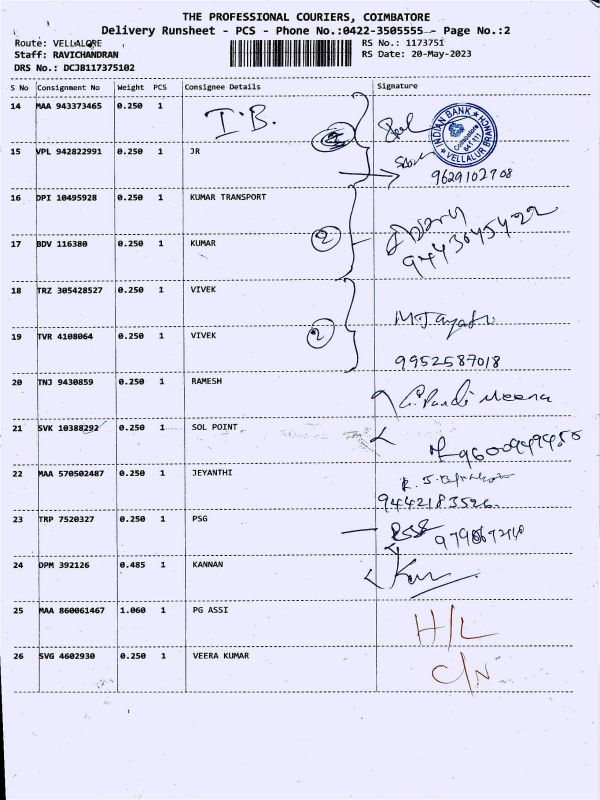 THE PROFESSIONAL COURIERS, COIMBATORE
Delivery Runsheet - PCS - Phone No.:0422-3505555 - Page No.:2
Route: VELLALORE RS No.: 1173751
Staff: RAVICHANDRAN RS Date: 20-May-2023
DRS No.: DCJB117375102
S No Consignment No Weight PCS Consignee Details Signature
14 MAA 943373465 0.250 1 I.B.
INDIAN BANK VELLALUR BRANCH
15 VPL 942822991 0.250 1 JR
9629102708
16 DPI 10495928 0.250 1 KUMAR TRANSPORT
17 BDV 116380 0.250 1 KUMAR 2 9443045422
18 TRZ 305428527 0.250 1 VIVEK
19 TVR 4108064 0.250 1 VIVEK 2
9952587018
20 TNJ 9430859 0.250 1 RAMESH Meena
21 SVK 10388292 0.250 1 SOL POINT
22 MAA 570502487 0.250 1 JEYANTHI
9442183526
23 TRP 7520327 0.250 1 PSG
24 DPM 392126 0.485 1 KANNAN
25 MAA 860061467 1.060 1 PG ASSI H/L
26 SVG 4602930 0.250 1 VEERA KUMAR C/N